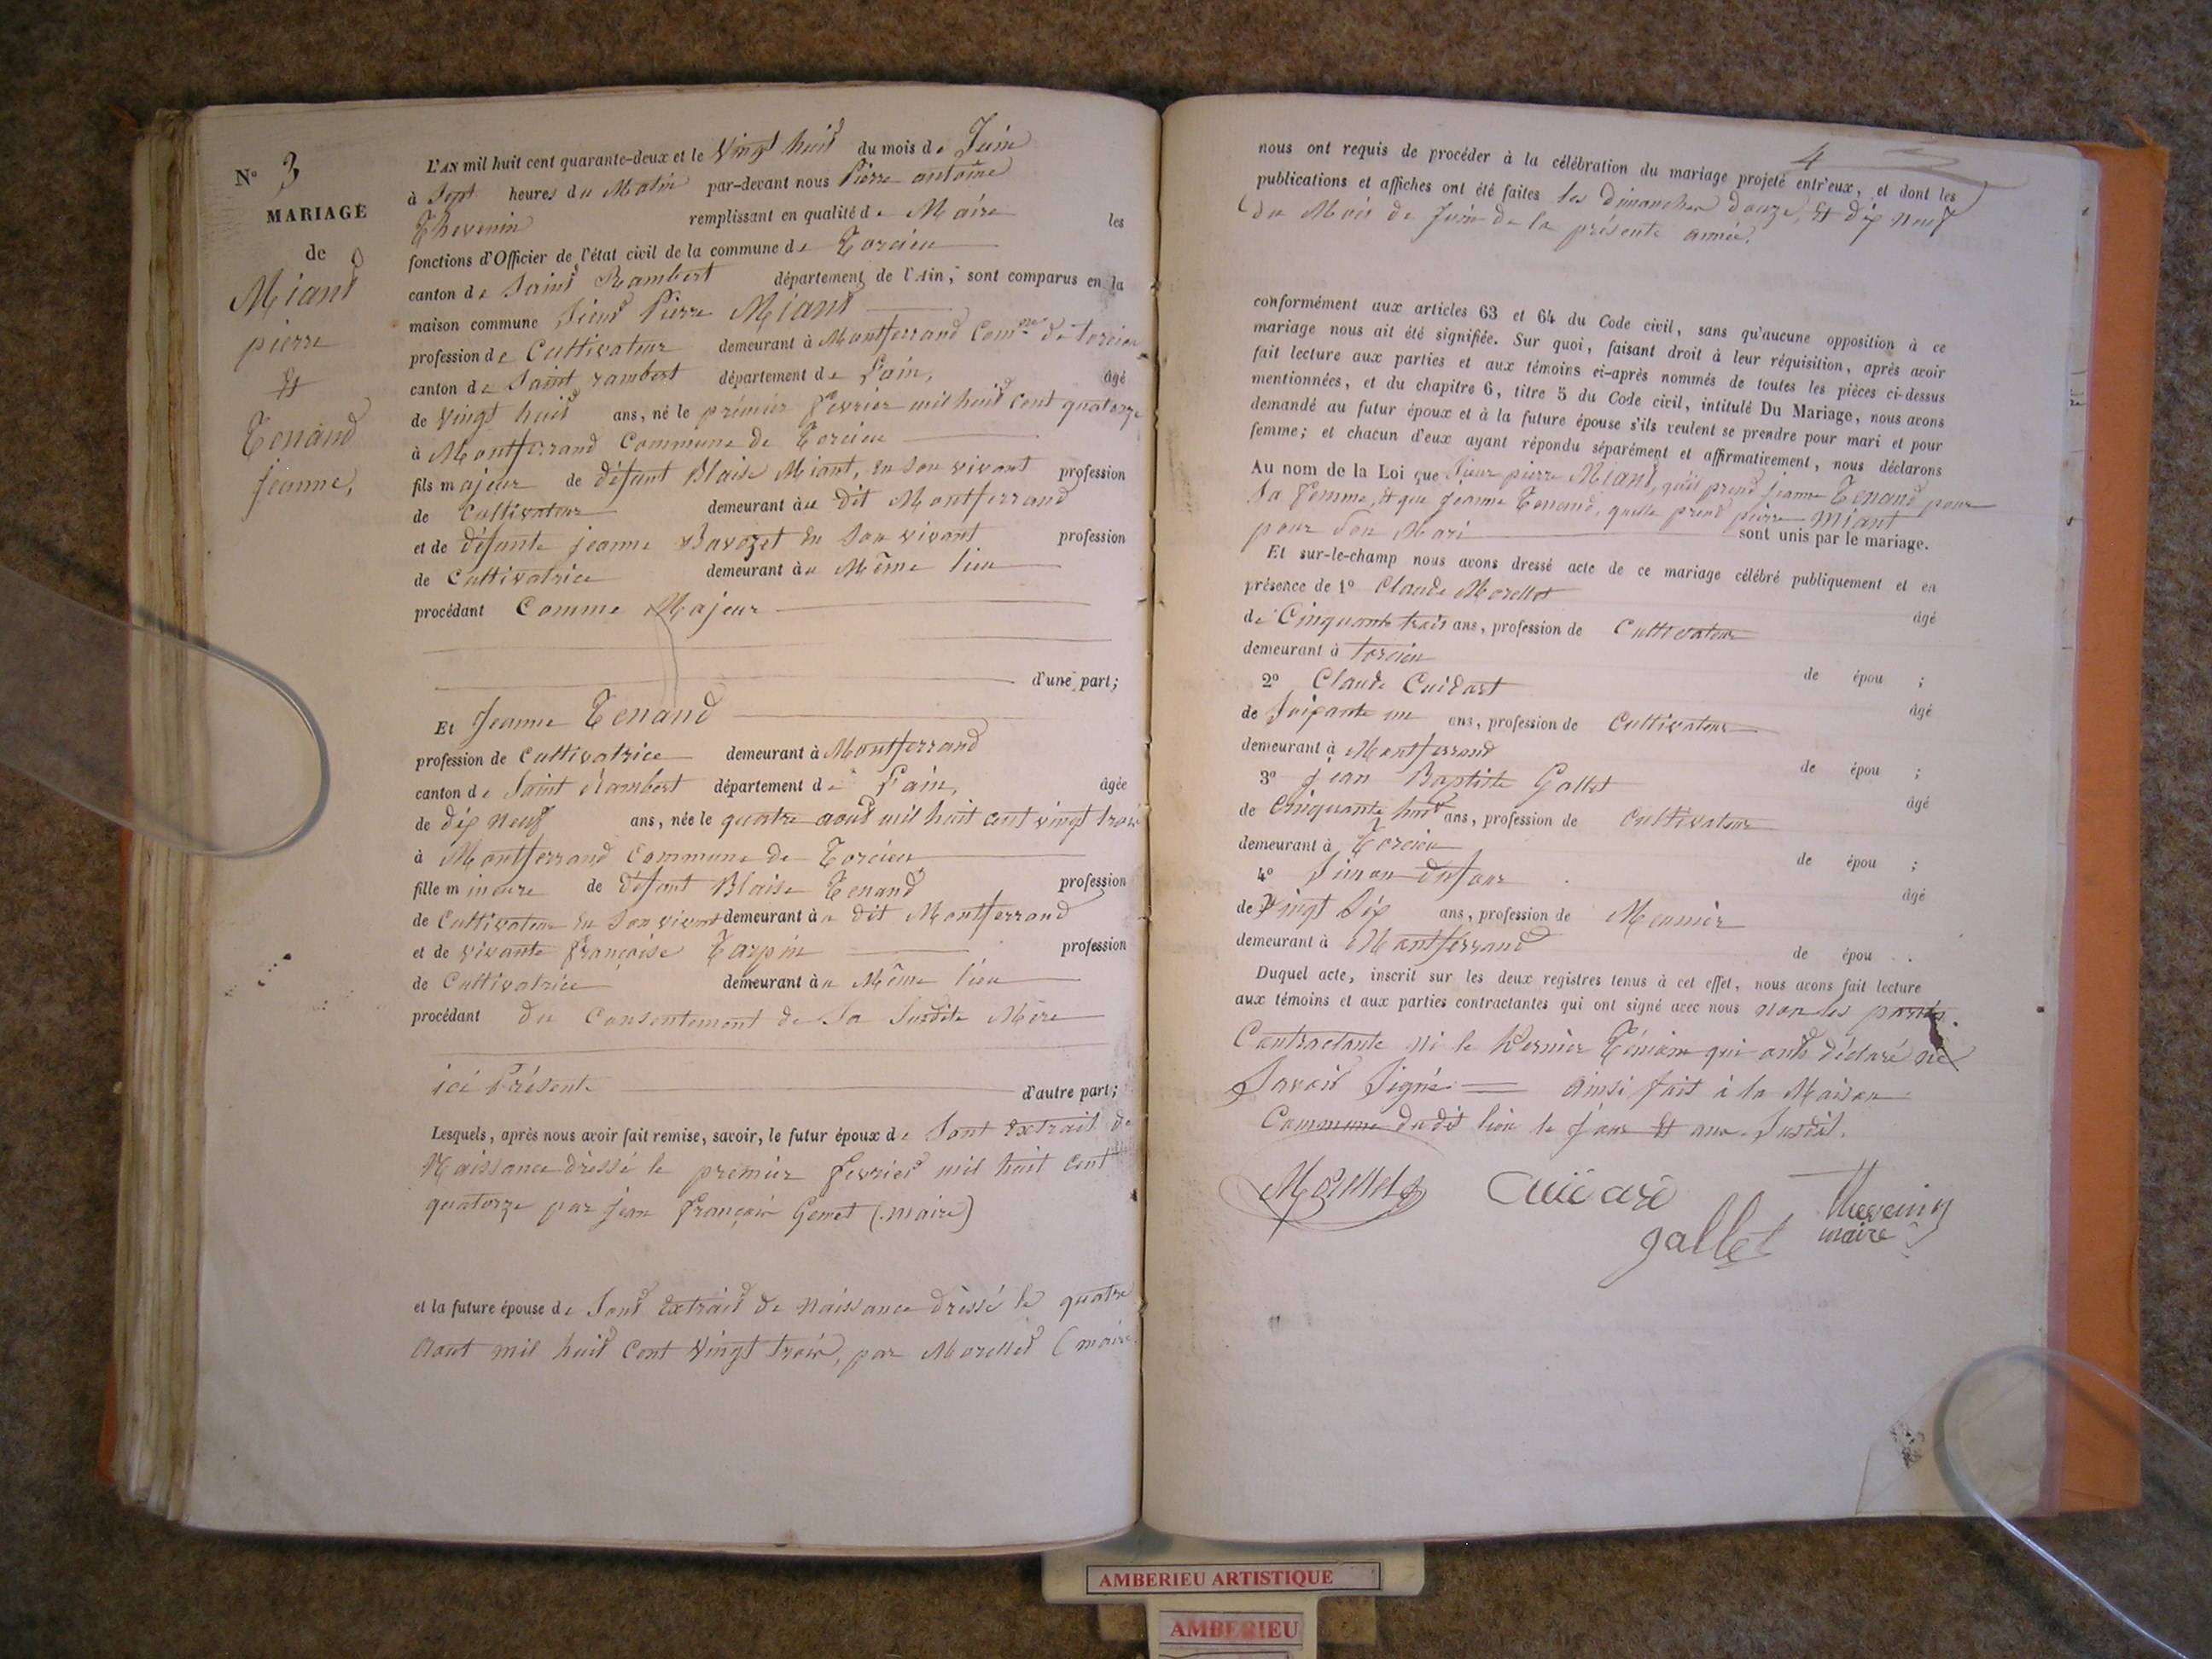 N° 3
MARIAGE
de
Miant
pierre
Et
Tenand
jeanne,
L'AN mil huit cent quarante-deux et le Vingt huit du mois de Juin
à Sept heures du Matin par-devant nous Pierre antoine
Thevenin remplissant en qualité de Maire les
fonctions d'Officier de l'état civil de la commune de Torcieu
canton de Saint Rambert département de l'Ain, sont comparus en la
maison commune Sieur Pierre Miant
profession de Cultivateur demeurant à Montferrand Com.ne de Torcieu
canton de Saint rambert département de L'ain, âgé
de Vingt huit ans, né le prémier fevrier mil huit cent quatorze
à Montferrand Commune de Torcieu
fils majeur de défunt Blaise Miant, en son vivant profession
de Cultivateur demeurant àu dit Montferrand
et de défunte jeanne Bavozet en Son vivant profession
de Cultivatrice demeurant àu Même lieu
procédant Comme Majeur
d'une part;
Et Jeanne Tenand
profession de Cultivatrice demeurant à Montferrand
canton de Saint rambert département de L'ain, âgée
de dix Neuf ans, née le quatre aout mil huit cent vingt trois
à Montferrand Commune de Torcieu
fille mineure de défunt Blaise Tenand profession
de Cultivateur en Son vivant demeurant àu dit Montferrand
et de vivante françoise Tarpin profession
de Cultivatrice demeurant àu Même lieu
procédant du Consentement de Sa Susdite Mère
ici Présente d'autre part;
Lesquels, après nous avoir fait remise, savoir, le futur époux de Sont Extrait de
Naissance dréssé le premier fevrier mil huit cent
quatorze par jean françois Genet (maire)
et la future épouse de Sont Extrait de Naissance dréssé le quatre
Aout mil huit Cent Vingt trois, par Morellet (maire
4
nous ont requis de procéder à la célébration du mariage projeté entr'eux, et dont les
publications et affiches ont été faites les dimanches douze, Et dix neuf
du Mois de Juin de la présente année.
conformément aux articles 63 et 64 du Code civil, sans qu'aucune opposition à ce
mariage nous ait été signifiée. Sur quoi, faisant droit à leur réquisition, après avoir
fait lecture aux parties et aux témoins ci-après nommés de toutes les pièces ci-dessus
mentionnées, et du chapitre 6, titre 5 du Code civil, intitulé Du Mariage, nous avons
demandé au futur époux et à la future épouse s'ils veulent se prendre pour mari et pour
femme; et chacun d'eux ayant répondu séparément et affirmativement, nous déclarons
Au nom de la Loi que Sieur pierre Miant, qu'il prend jeanne Tenand pour
Sa femme, Et que jeanne Tenand, quelle prend pierre Miant
pour Son Mari sont unis par le mariage.
Et sur-le-champ nous avons dressé acte de ce mariage célébré publiquement et en
présence de 1° Claude Morellet
de Cinquante trois ans, profession de Cultivateur âgé
demeurant à Torcieu
2° Claude Cuidart de épou ;
de Soixante un ans, profession de Cultivateur âgé
demeurant à Montferrand
3° jean Baptiste Gallet de épou ;
de Cinquante huit ans, profession de Cultivateur âgé
demeurant à Torcieu
4° Simon dufour de épou ;
de Vingt Six ans, profession de Meunier âgé
demeurant à Montferrand
de épou .
Duquel acte, inscrit sur les deux registres tenus à cet effet, nous avons fait lecture
aux témoins et aux parties contractantes qui ont signé avec nous non les parties
Contractante ni le Dernier Témoin qui onts déclaré ne
Savoir Signé Ainsi fait à la Maison
Commune dudit lieu le jour Et an Susdit.
Morellet Cuidard Thevenin
gallet maire
AMBERIEU ARTISTIQUE
AMBERIEU